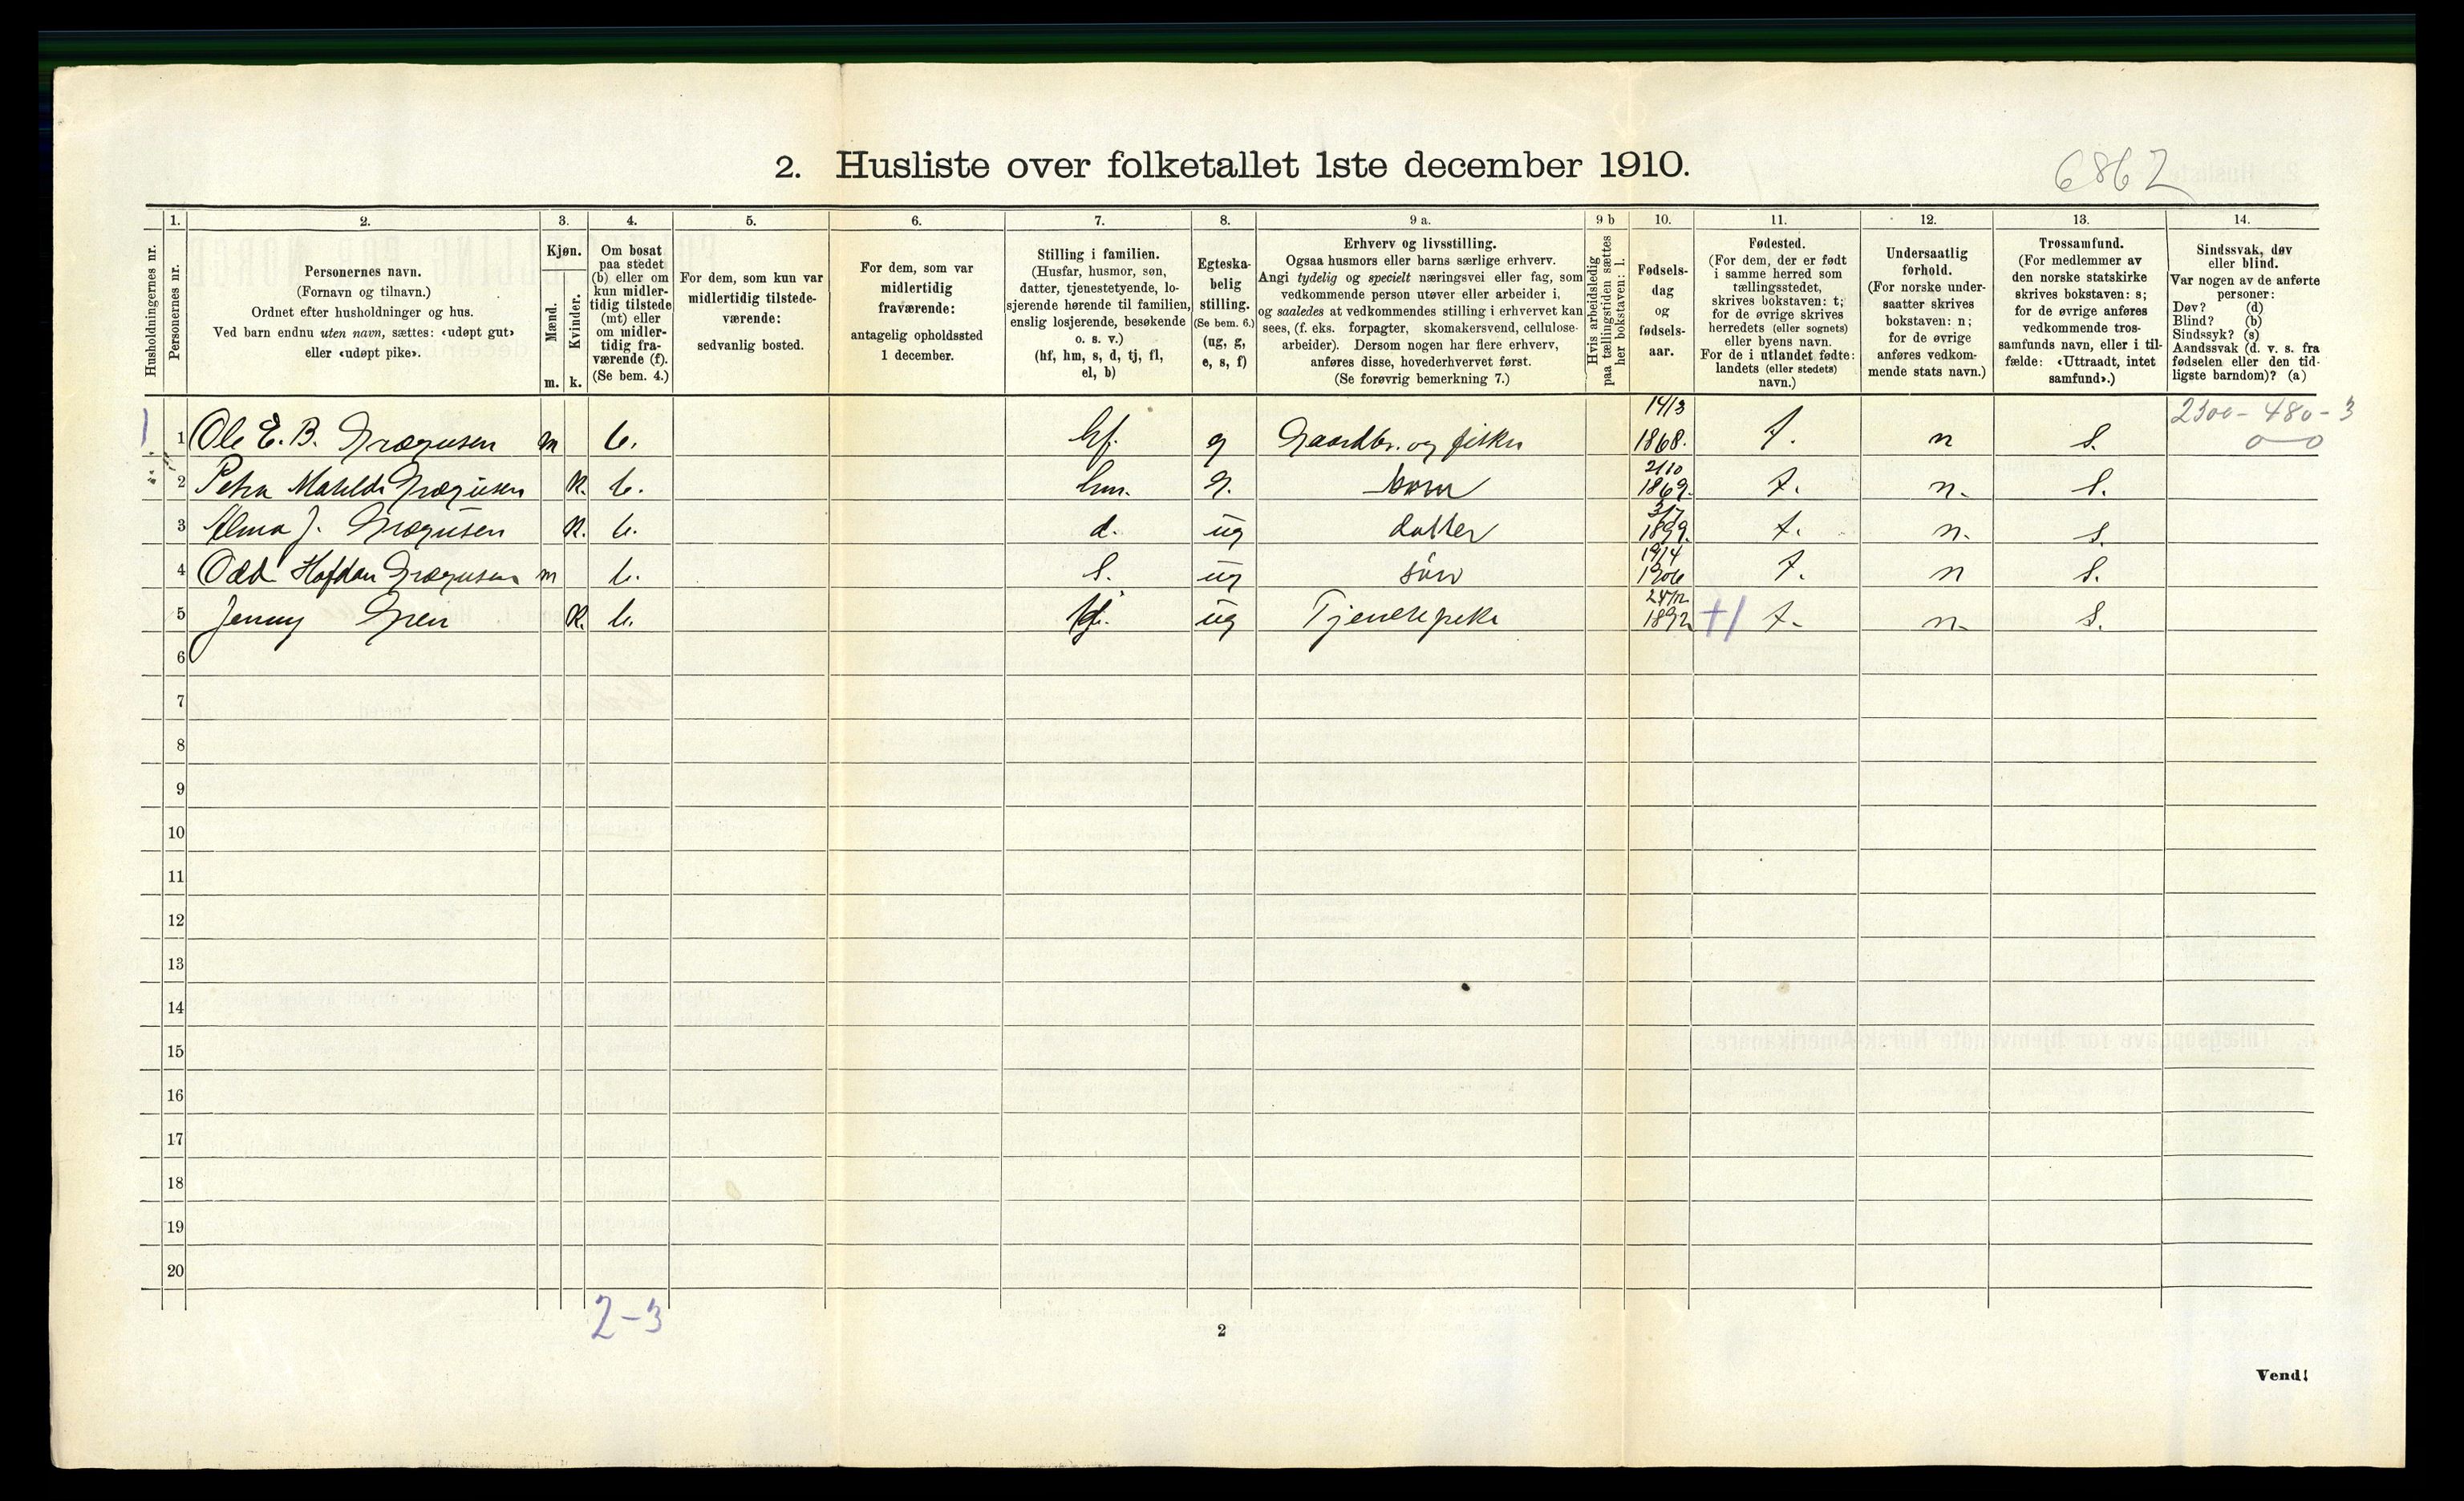 2. Husliste over folketallet 1ste december 1910.
6862
1. 2. 3. 4. 5. 6. 7. 8. 9 a. 9 b 10. 11. 12. 13. 14.
Husholdningernes nr.
Personernes nr.
Personernes navn.
(Fornavn og tilnavn.)
Ordnet efter husholdninger og hus.
Ved barn endnu uten navn, sættes: «udøpt gut»
eller «udøpt pike».
Kjøn.
Mænd.
Kvinder.
m. k.
Om bosat
paa stedet
(b) eller om
kun midler-
tidig tilstede
(mt) eller
om midler-
tidig fra-
værende (f).
(Se bem. 4.)
For dem, som kun var
midlertidig tilstede-
værende:
sedvanlig bosted.
For dem, som var
midlertidig
fraværende:
antagelig opholdssted
1 december.
Stilling i familien.
(Husfar, husmor, søn,
datter, tjenestetyende, lo-
sjerende hørende til familien,
enslig losjerende, besøkende
o. s. v.)
(hf, hm, s, d, tj, fl,
el, b)
Egteska-
belig
stilling.
(Se bem. 6.)
(ug, g,
e, s, f)
Erhverv og livsstilling.
Ogsaa husmors eller barns særlige erhverv.
Angi tydelig og specielt næringsvei eller fag, som
vedkommende person utøver eller arbeider i,
og saaledes at vedkommendes stilling i erhvervet kan
sees, (f. eks. forpagter, skomakersvend, cellulose-
arbeider). Dersom nogen har flere erhverv,
anføres disse, hovederhvervet først.
(Se forøvrig bemerkning 7.)
Hvis arbeidsledig
paa tællingstiden sættes
her bokstaven: l.
Fødsels-
dag
og
fødsels-
aar.
Fødested.
(For dem, der er født
i samme herred som
tællingsstedet,
skrives bokstaven: t;
for de øvrige skrives
herredets (eller sognets)
eller byens navn.
For de i utlandet fødte:
landets (eller stedets)
navn.)
Undersaatlig
forhold.
(For norske under-
saatter skrives
bokstaven: n;
for de øvrige
anføres vedkom-
mende stats navn.)
Trossamfund.
(For medlemmer av
den norske statskirke
skrives bokstaven: s;
for de øvrige anføres
vedkommende tros-
samfunds navn, eller i til-
fælde: «Uttraadt, intet
samfund».)
Sindssvak, døv
eller blind.
Var nogen av de anførte
personer:
Døv? (d)
Blind? (b)
Sindssyk? (s)
Aandssvak (d. v. s. fra
fødselen eller den tid-
ligste barndom)? (a)
1 1 Ole E. B. Grægusen m b. hf. g Gaardbr. og fisker 14/3 1868. t. n s. 2300-480-3 0-0
2 Petra Matilde Grægusen k. b. hm. g. 2/10 1869. t. n. s.
3 Alma J. Grægusen k. b. d. ug datter 3/7 1899. t. n. s.
4 Odd Hafdan Grægusen m b. s. ug søn 19/4 1906 t. n s.
5 Jenny Gren k. b. tj. ug Tjenestepike 24/12 1892 t. n. s.
6
7
8
9
10
11
12
13
14
15
16
17
18
19
20
2-3
2
Vend!